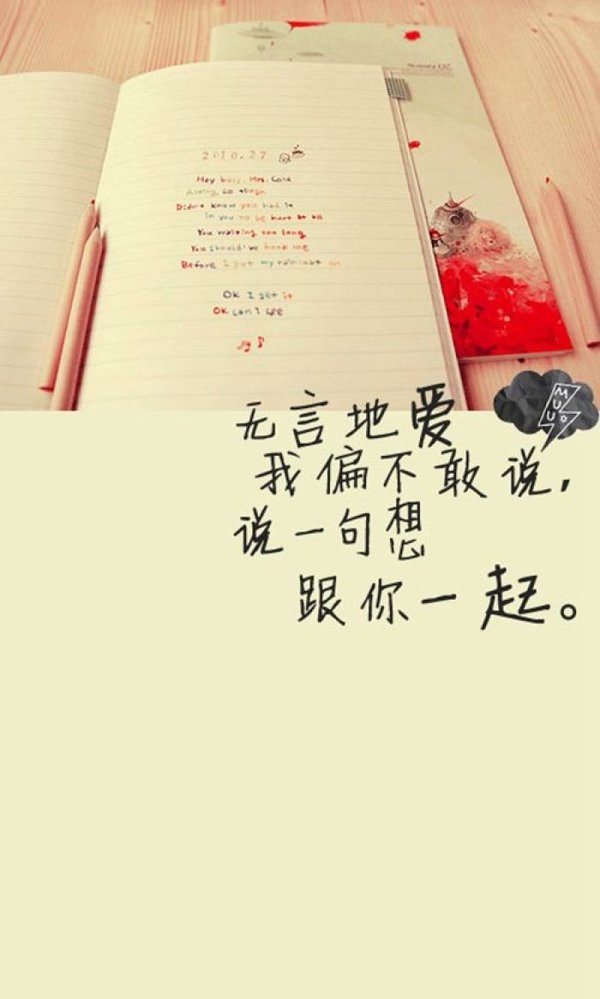 2010.27
Hey boy, Mrs. Cold
Acting so tough
Didn't know you had it
in you to be hurt at all
You waiting too long
You should've hook me
Before I put my raincoat on
OK I get it
OK can I see
无言地爱
我偏不敢说，
说一句想
跟你一起。
MUUO